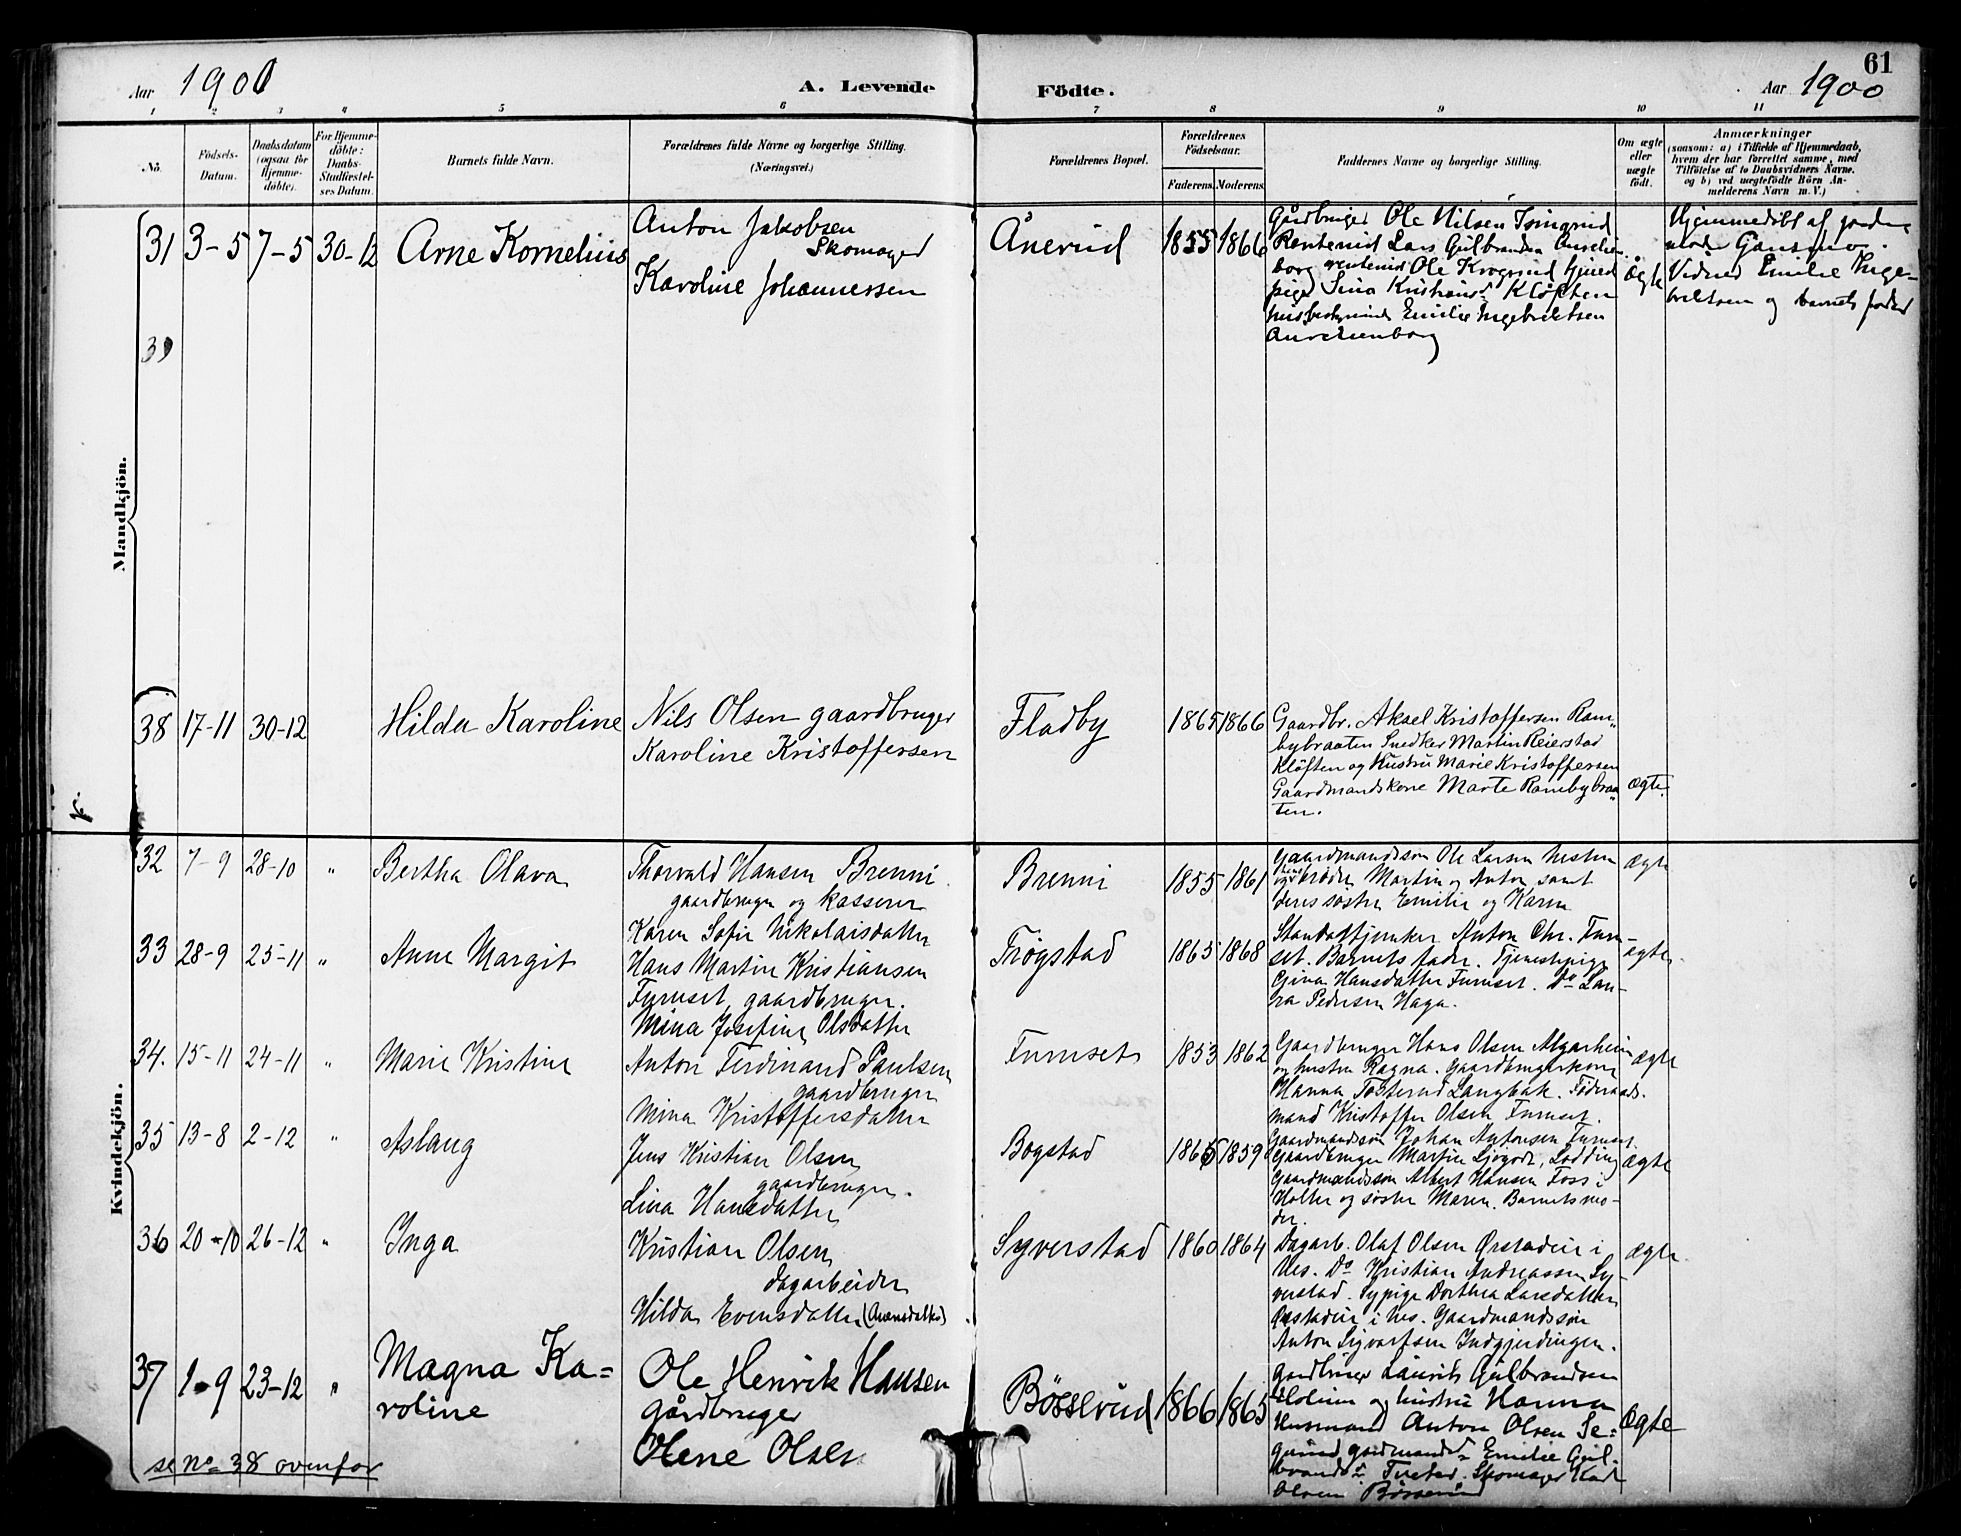 61
Aar 1900
A. Levende Födte.
Aar 1900
1 2 3 4 5 6 7 8 9 10 11
No.
Födsels-Datum.
Daabsdatum (ogsaa for Hjemmedöbte).
For Hjemmedöbte: Daabs-Stadfæstelses Datum.
Barnets fulde Navn.
Forældrenes fulde Navne og borgerlige Stilling.
(Næringsvei.)
Forældrenes Bopæl.
Forældrenes Födselsaar.
Faderens. Moderens.
Faddernes Navne og borgerlige Stilling.
Om ægte eller uægte födt.
Anmærkninger
(saasom: a) i Tilfælde af Hjemmedaab, hvem der har forrettet samme, med Tilföielse af to Daabsvidners Navne. og b) ved uægtefödte Börn Anmelderens Navn m. V.)
Mandkjön.
31 3-5 7-5 30-12 Arne Kornelius
Anton Jakobsen
Skomager
Karoline Johannessen
Ånerud 1855 1866
Gårdbruger Ole Nilsen
Lars Gulbrandsen
Ole Krogsrud
Kløften
Emilie Ingebriktsen
Aurelienborg
Ægte
Hjemmedøbt af jordemoder
Vidner Emilie Ingebriktsen og barnets fader
39
38 17-11 30-12 Hilda Karoline
Nils Olsen gaardbruger
Karoline Kristoffersen
Fladby 1865 1866
Gaardbr. Aksel Kristoffersen Ram„
bybraaten Snedker Martin Reierstad
Kløften og Hustru Marie Kristoffersen
Gaardmandskone Marte Rambybraa„
ten.
Ægte.
Kvindekjön.
32 7-9 28-10 „ Bertha Olava
Thorvald Hansen Brenni
gaardbruger og kasserer
Karen Sofie Nikolaisdatter
Brenni 1855 1861
Gaardmandssøn Ole Larsen
brødre Martin og Anton samt
deres søstre Emilie og Karen
Ægte
33 28-9 25-11 „ Anne Margit
Hans Martin Kristiansen
Furuset, gaardbruger.
Mina Josefine Olsdatter
Trøgstad 1865 1868
Anton Chr. Furu-
set. Barnets fader. Tjenestepige
Gina Hansdatter Furuset. Do Lau-
ra Pedersen Haga.
ægte.
34. 15-11 24-11 „ Marie Kristine
Anton Ferdinand Paulsen
gaardbruger
Mina Kristoffersdatter
Furuset 1853 1862
Gaardbruger Hans Olsen Algarheim
og hustru Ragna. Gaardbrugerkone
Hanna Tosterud Langbak. Føderaads-
mand Kristoffer Olsen Furuset.
ægte
35 13-8 2-12 „ Aslaug
Jens Kristian Olsen
gaardbruger.
Lina Hansdatter
Bogstad 1865 1859
Gaardmandssøn Johan Antonsen Furuset.
Gaardbruger Martin
Gaardmandssøn Albert Hansen Foss i
Holter og søster Maren. Barnets mo-
der.
Ægte
36 20-10 26-12 „ Inga
Kristian Olsen
dagarbeider
Hilda Evensdatter
Syverstad 1860 1864
Dagarb. Olaf Olsen Ørstadeie i
Nes. Do Kristian Andreassen Sy-
verstad. Sypige Dorthea Larsdatter
Ørstadeie i Nes. Gaardmandssøn
Anton Sigvartsen Indgjerdingen.
Ægte.
37 1-9 23-12 „ Magna Ka=
roline
Ole Henrik Hansen
gårdbruger
Olene Olsen
Bösserud 1866 1865
gardbruger Laurits Gulbrandsen
Holum og hustru Hanna
Husmand Anton Olsen Se=
Emilie Gul-
Skomager Karl
Olsen Bösserud
Ægte
se no 38 ovenfor